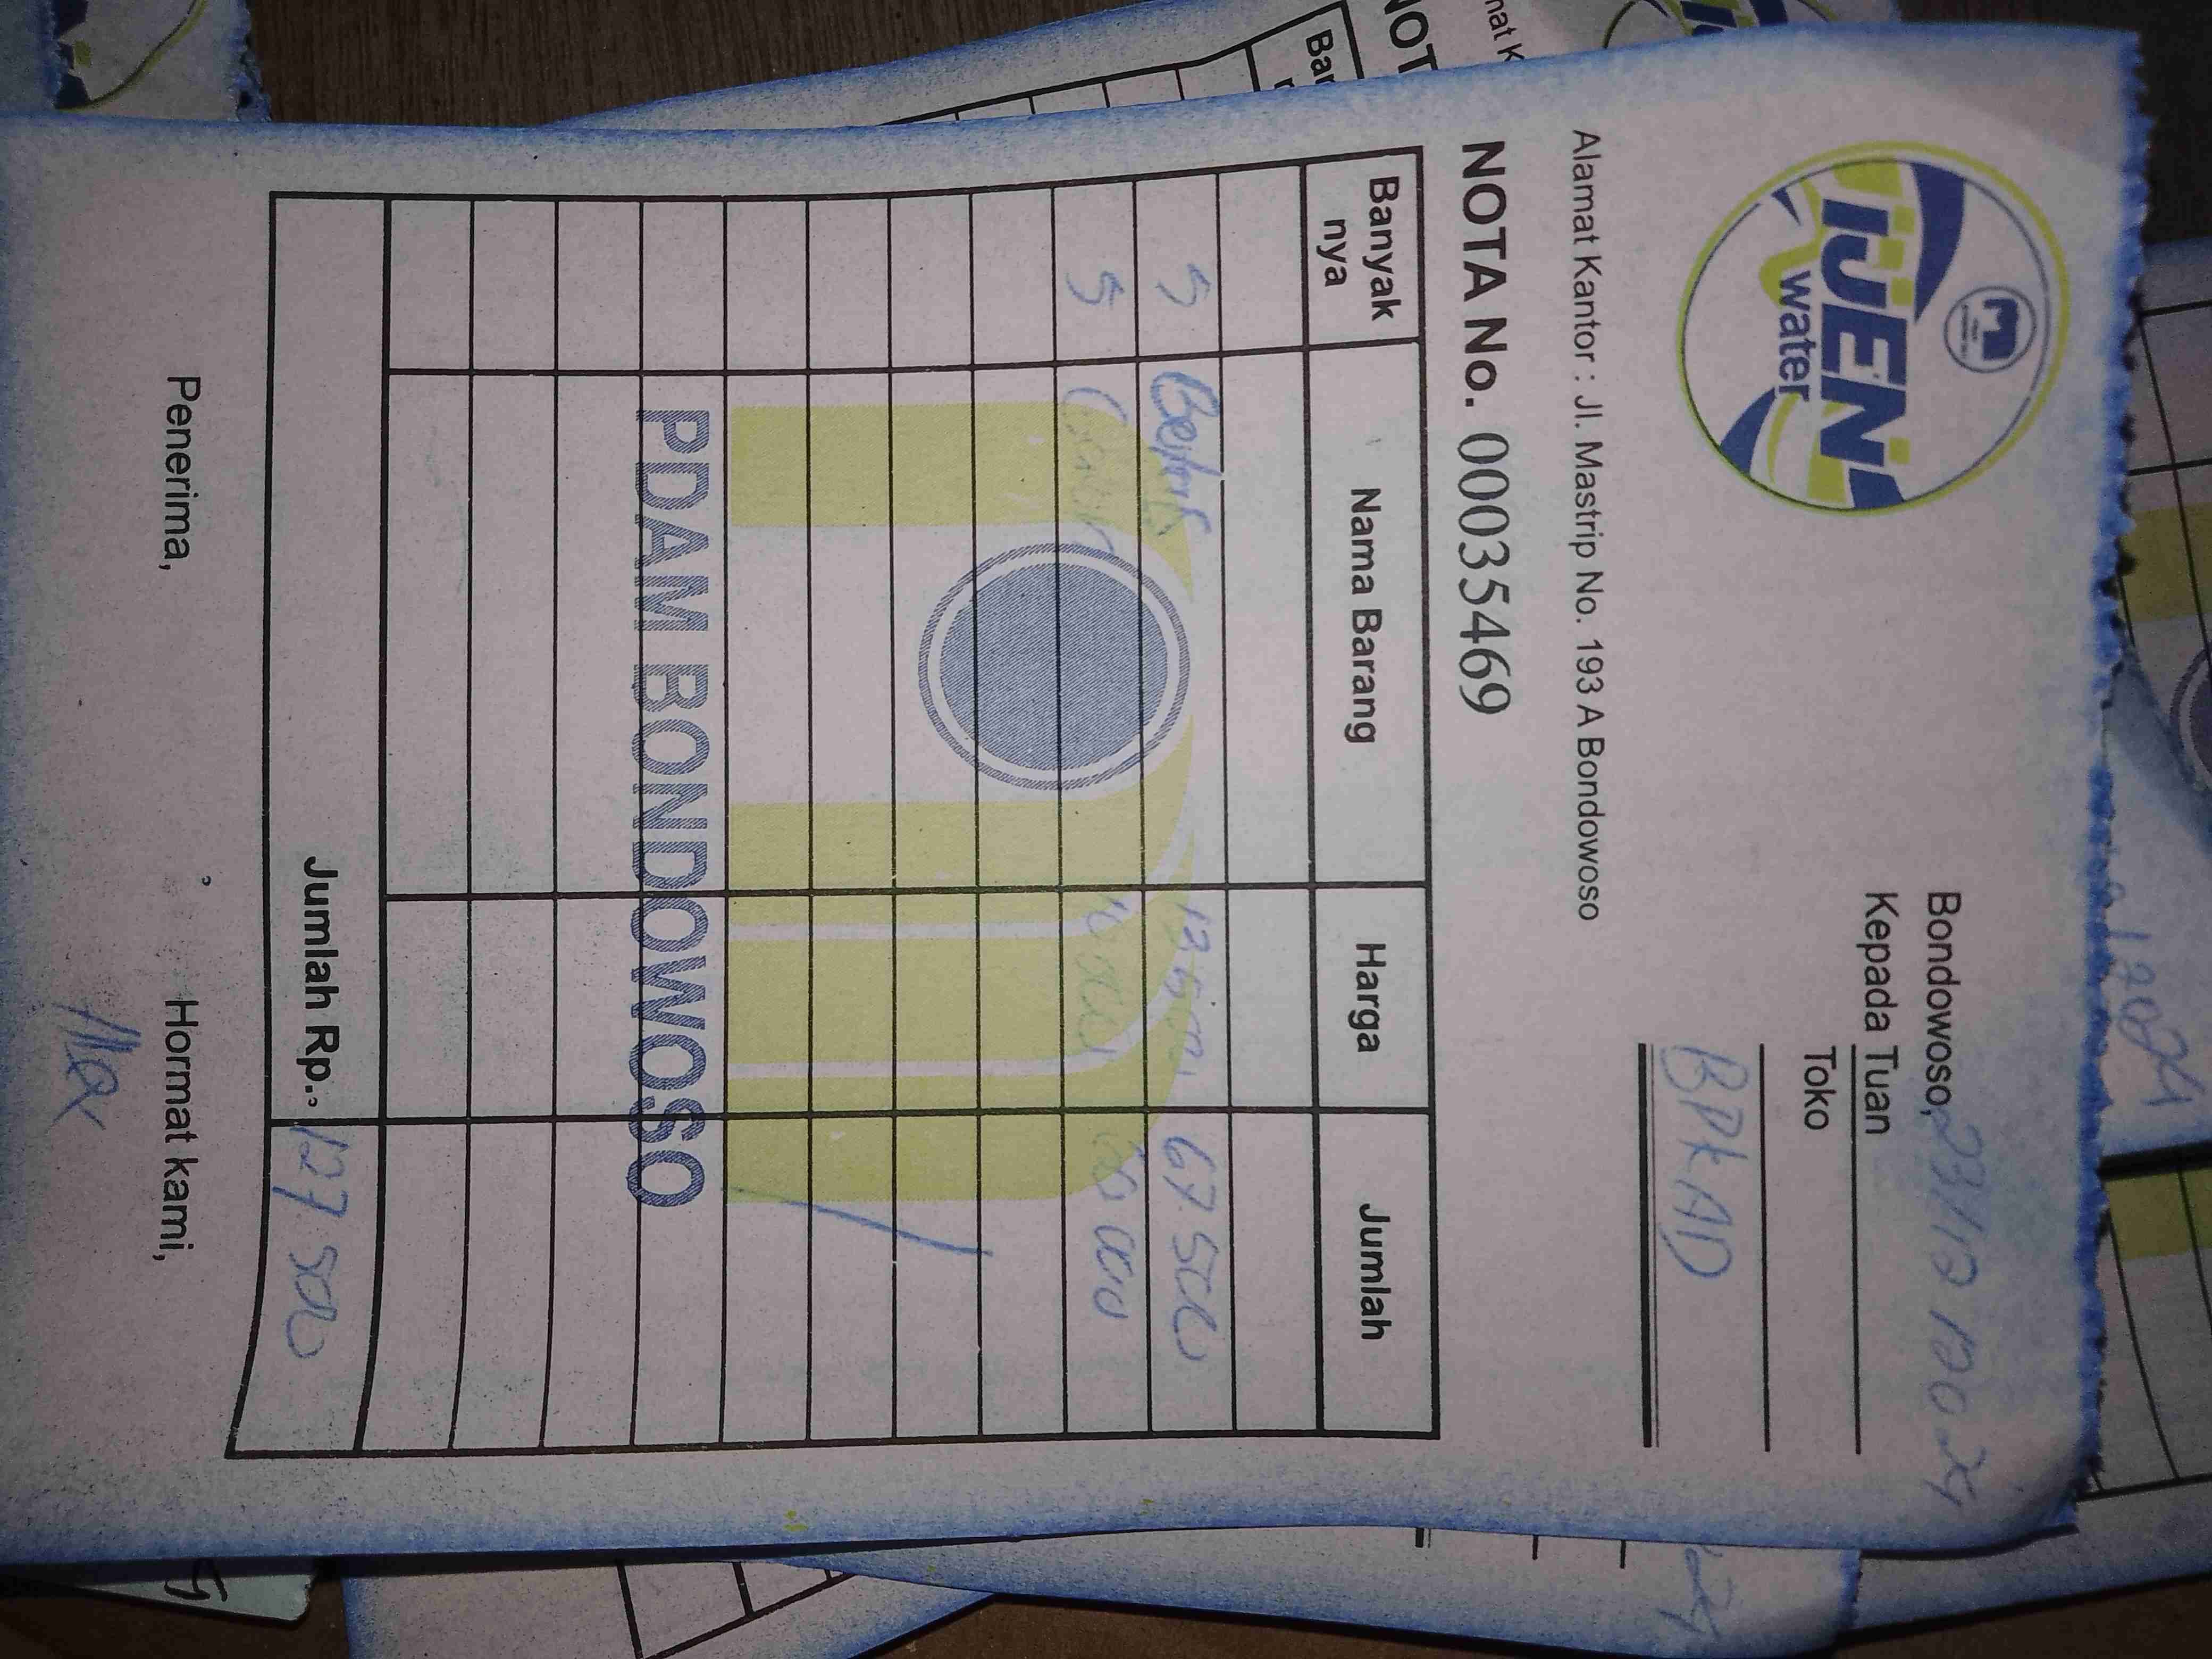 IJEN
water
Bondowoso, 23/12 2024
Kepada Tuan
Toko
BPKAD
Alamat Kantor : Jl. Mastrip No. 193 A Bondowoso
NOTA No. 00035469
Banyak nya Nama Barang Harga Jumlah
5 13.500 67.500
5 60.000
PDAM BONDOWOSO
Jumlah Rp. 127.500
Penerima, Hormat kami,